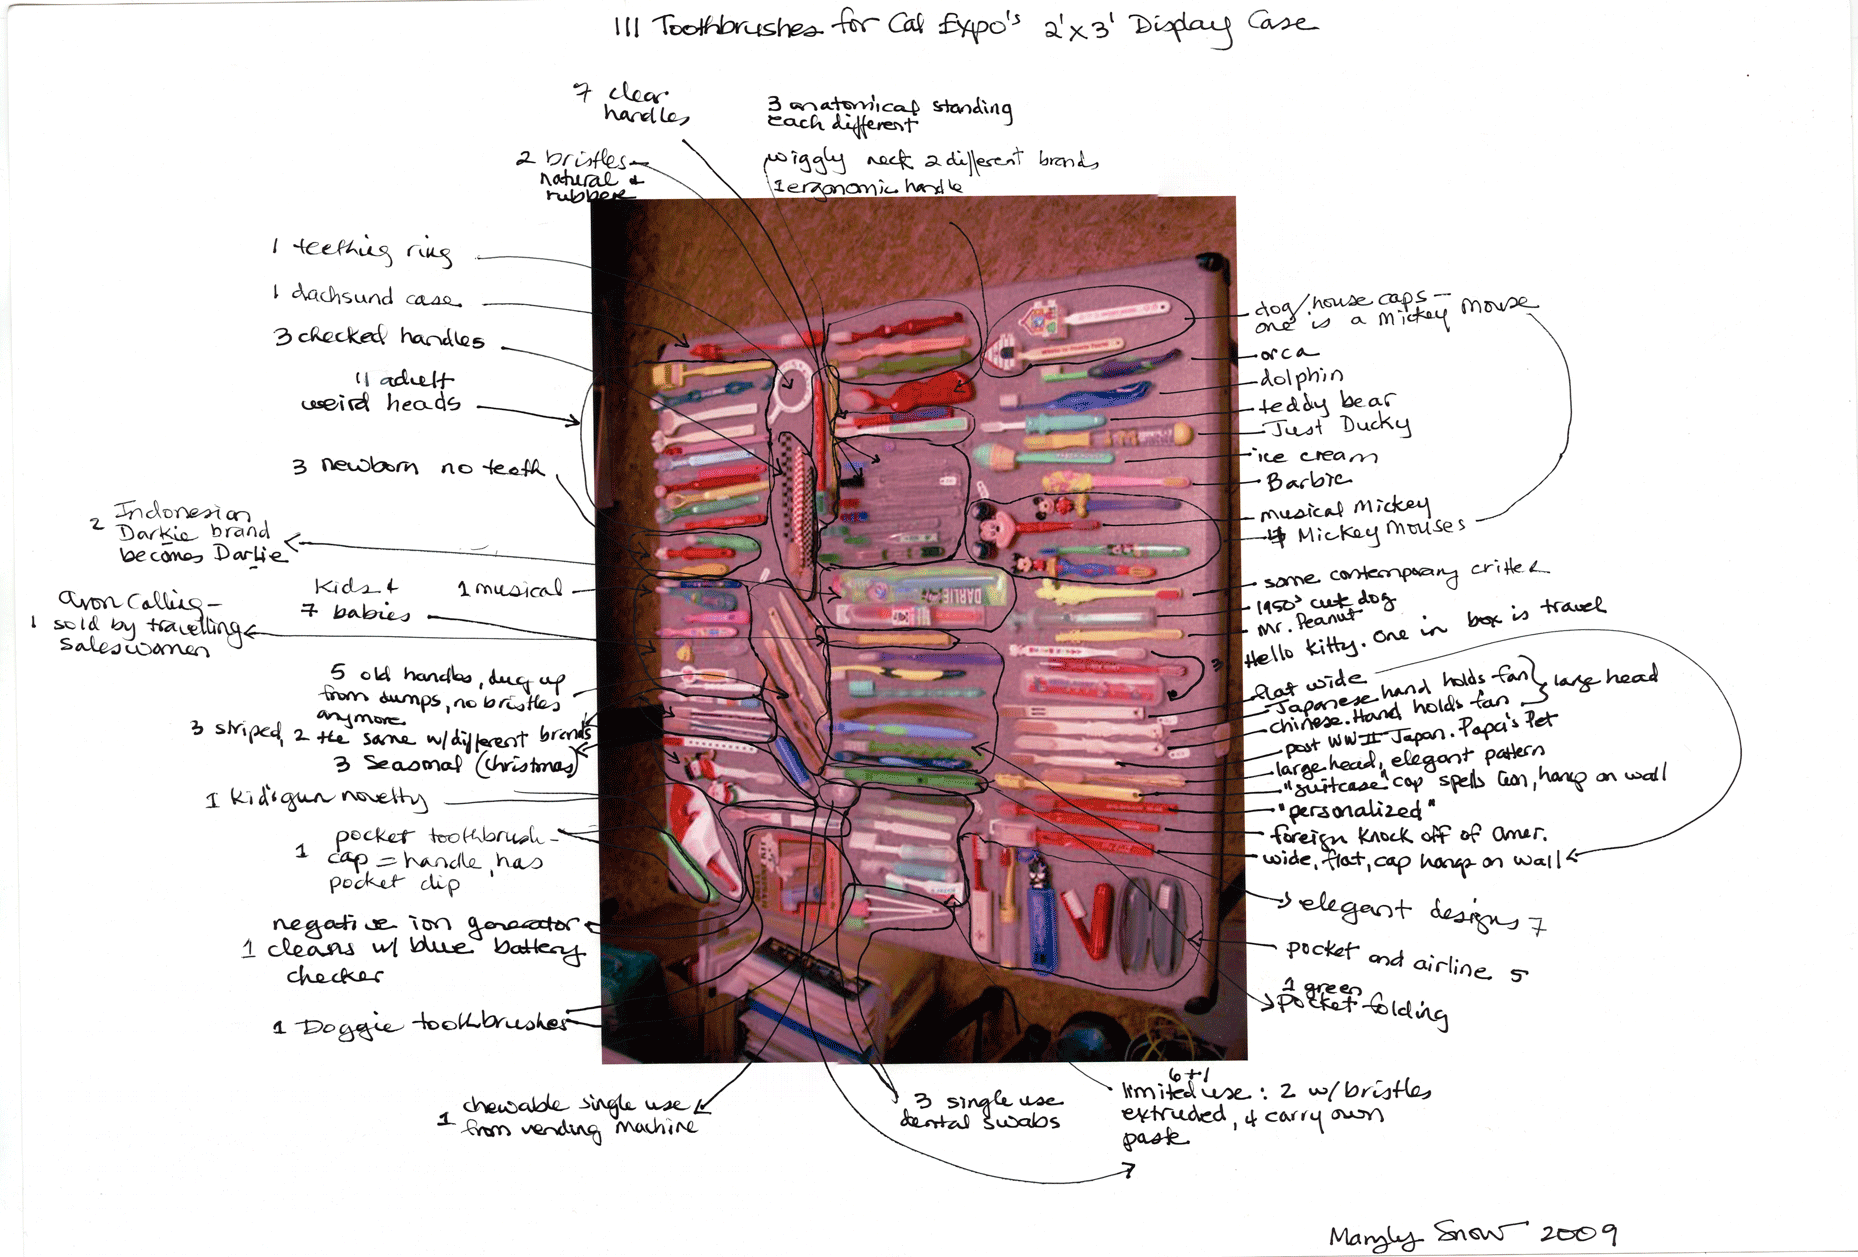 111 Toothbrushes for Cal Expo's 2'x3' Display Case
7 clear
handles
3 anatomical standing
each different
2 bristles
natural &
rubber
wiggly neck 2 different brands
1 ergonomic handle
1 teething ring
1 dachsund case
3 checked handles
11 adult
weird heads
3 newborn no teeth
2 Indonesian
Darkie brand
becomes Darlie
Kids &
7 babies
1 musical
Avon Calling –
1 sold by travelling
saleswomen
5 old handles, dug up
from dumps, no bristles
anymore
3 striped, 2 the same w/different brands
3 Seasonal (Christmas)
1 Kid's gun novelty
1 pocket toothbrush –
cap = handle, has
pocket clip
negative ion generator
1 cleans w/ blue battery
checker
1 Doggie toothbrushes
1 chewable single use
from vending machine
3 single use
dental swabs
6+1
limited use: 2 w/bristles
extruded, 4 carry own
paste
dog/house caps –
one is a Mickey Mouse
orca
dolphin
teddy bear
Just Ducky
ice cream
Barbie
musical Mickey
4 Mickey Mouses
some contemporary critter
1950's cute dog
Mr. Peanut
Hello Kitty. One in box is travel
3
flat wide
Japanese hand holds fan
Chinese. Hand holds fan
large head
post WWII Japan. Papa's Pet
large head, elegant pattern
"suitcase" cap spells Lion, hang on wall
"personalized"
foreign knock off of Amer.
wide, flat, cap hangs on wall
elegant designs 7
pocket and airline 5
1 green
pocket folding
DARLIE
Mangly Snow 2009